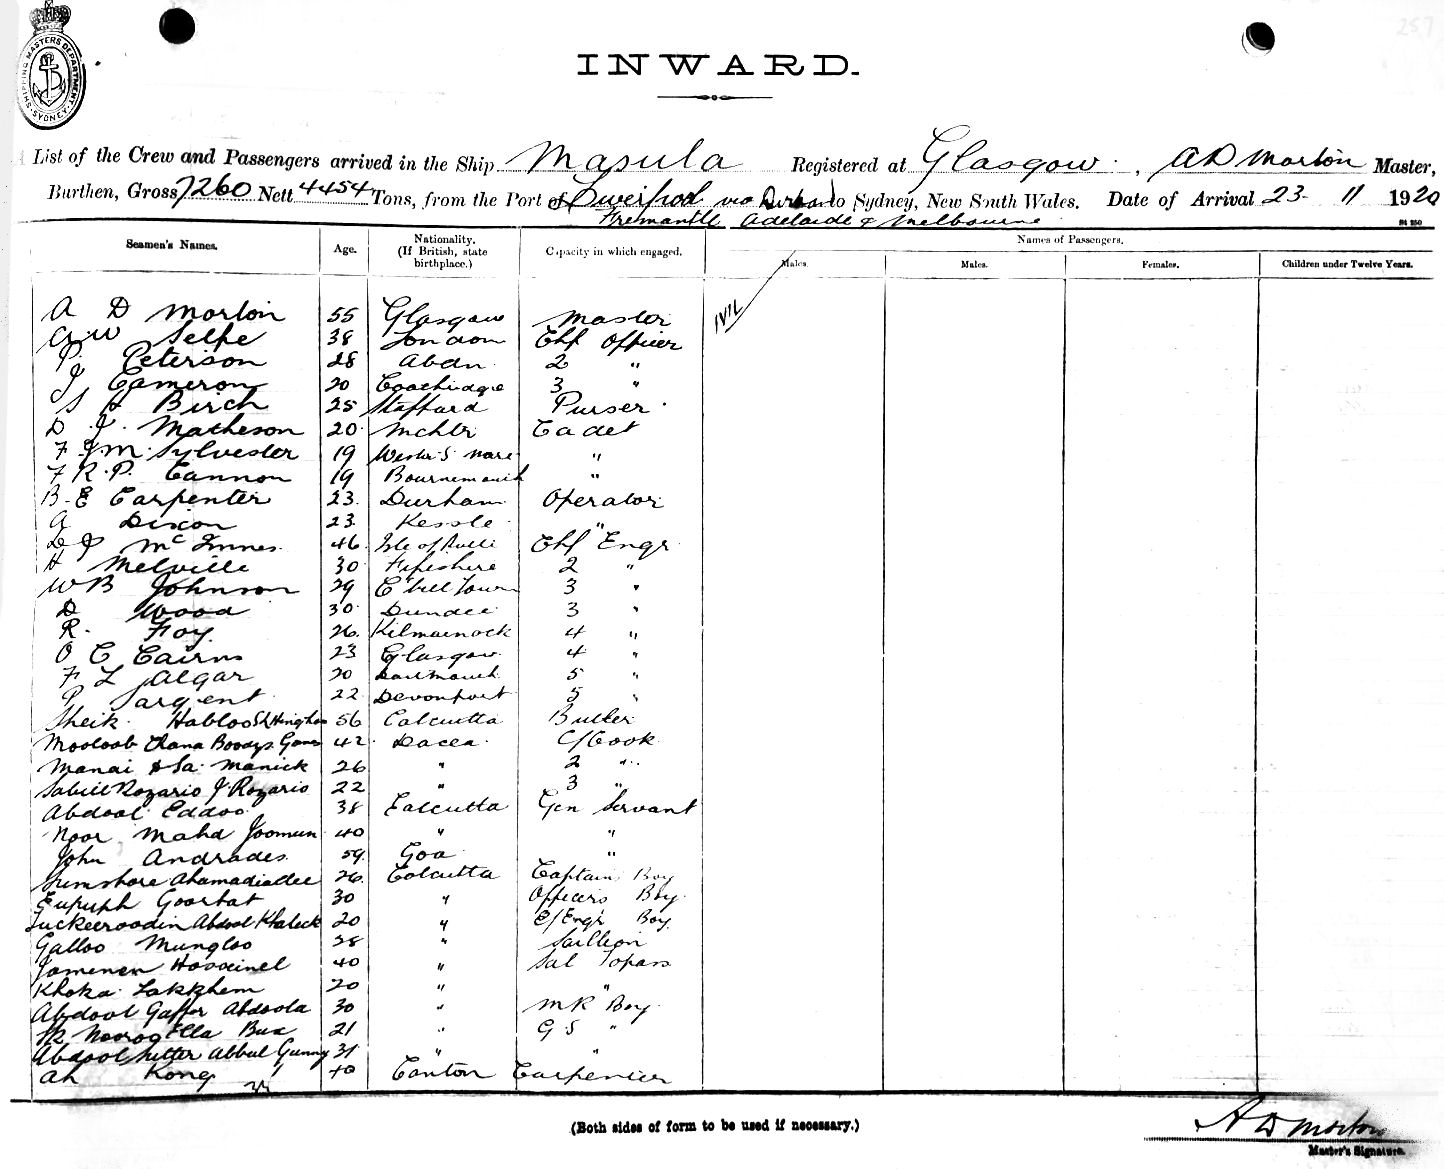 SHIPPING MASTERS DEPARTMENT SYDNEY
257
INWARD.
List of the Crew and Passengers arrived in the Ship Masula Registered at Glasgow, A D Morton Master,
Burthen, Gross 7260 Nett 4454 Tons, from the Port of Liverpool via Durban to Sydney, New South Wales. Date of Arrival 23 11 1920
Fremantle Adelaide & Melbourne
Seamen's Names. Age. Nationality. (If British, state birthplace.) Capacity in which engaged. Names of Passengers.
Males. Males. Females. Children under Twelve Years.
A D Morton 55 Glasgow Master
Selfe 38 London Chf Officer
P. Peterson 28 Abdn 2 "
J Cameron 20 3 "
S Birch 25 Stafford Purser
D J. Matheson 20 Mchtr Cadet
F J. M. Sylvester 19 Weston S Mare "
F R. P. Cannon 19 Bournemouth "
B. E Carpenter 23 Durham Operator
A Dixon 23 "
D J McInnes 46 Isle of Chf Engr
H Melville 30 Fifeshire 2 "
W B Johnson 29 C'bell Town 3 "
D Wood 30 Dundee 3 "
R. Foy 26 Kilmarnock 4 "
O C Cairns 23 Glasgow 4 "
F L Algar 20 Dartmouth 5 "
P Sargent 22 Devonport 5 "
Sheik Habloo 56 Calcutta Butler
42 Dacca C/Cook
Manai Sa Manick 26 " 2 "
Rozario J. Rozario 22 " 3 "
Abdool Eddoo 38 Calcutta Gen Servant
Noor Mahd Joomun 40 " "
John Andrades 59 Goa "
Ahamadiallee 26 Calcutta Captains Boy
Goorbat 30 " Officers Boy
Abdool Khaleck 20 " C/Engr Boy
Galloo Mungloo 38 "
40 " Sal Topass
Khoka 20 " "
Abdool Gaffer Abdoola 30 " MR Boy
Bux 21 " G S "
Abdool Gunny 31 " "
Ah Kong Canton Carpenter
(Both sides of form to be used if necessary.)
A D Morton
Master's Signature.